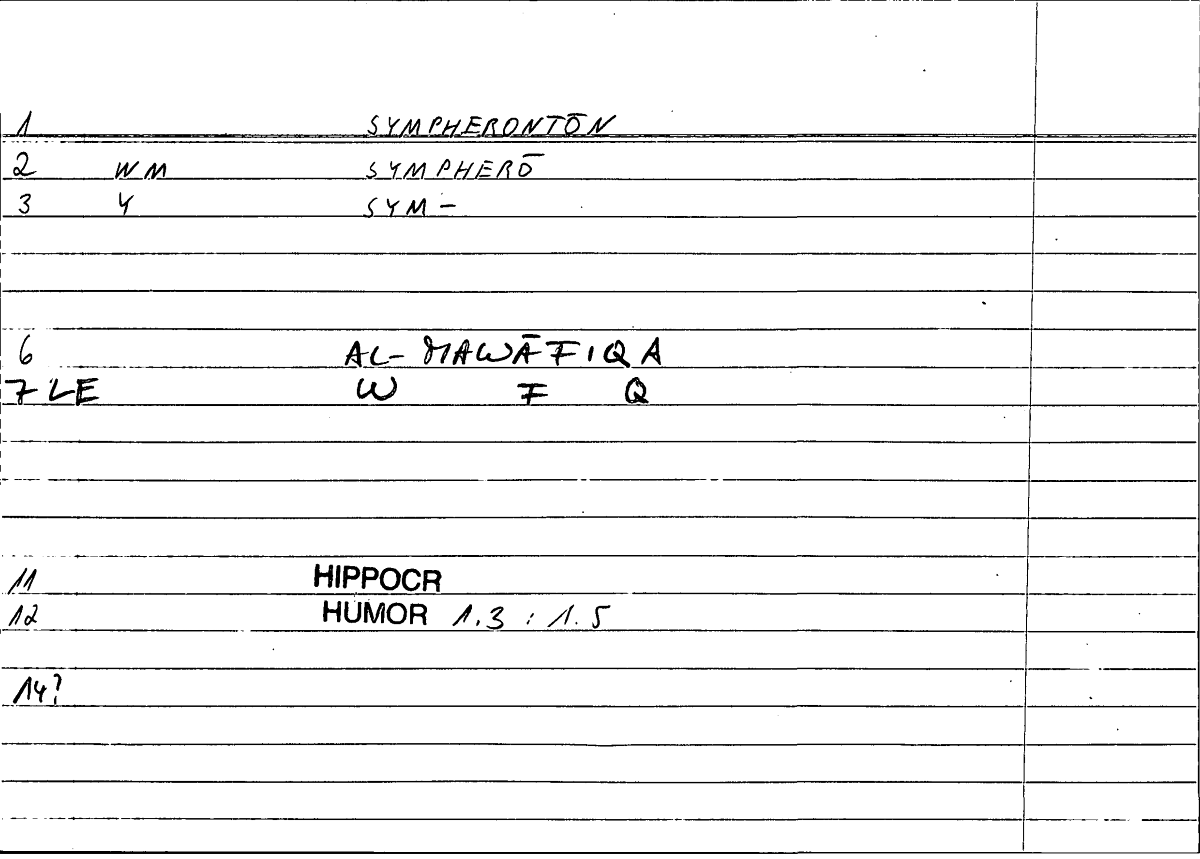 1 SYMPHERONTŌN
2 WM SYMPHERŌ
3 Y SYM-
6 AL-MAWĀFIQA
7 LE W F Q
11 HIPPOCR
12 HUMOR 1.3 : 1.5
14?